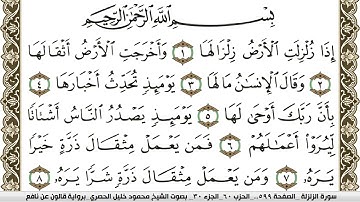 بِسْمِ اللَّهِ الرَّحْمَٰنِ الرَّحِيمِ
إِذَا زُلْزِلَتِ الْأَرْضُ زِلْزَالَهَا ١ وَأَخْرَجَتِ الْأَرْضُ أَثْقَالَهَا
٢ وَقَالَ الْإِنسَٰنُ مَالَهَا ٣ يَوْمَئِذٍ تُحَدِّثُ أَخْبَارَهَا ٤
بِأَنَّ رَبَّكَ أَوْحَىٰ لَهَا ٥ يَوْمَئِذٍ يَصْدُرُ النَّاسُ أَشْتَاتًا
لِّيُرَوْاْ أَعْمَٰلَهُمْ ٦ فَمَن يَعْمَلْ مِثْقَالَ ذَرَّةٍ خَيْرًا
يَرَهُۥ ٧ وَمَن يَعْمَلْ مِثْقَالَ ذَرَّةٍ شَرًّا يَرَهُۥ ٨
سورة الزلزلة _ الصفحة ٥٩٩ _ الحزب ٦٠ _ الجزء ٣٠ _ بصوت الشيخ محمود خليل الحصري _ برواية قالون عن نافع